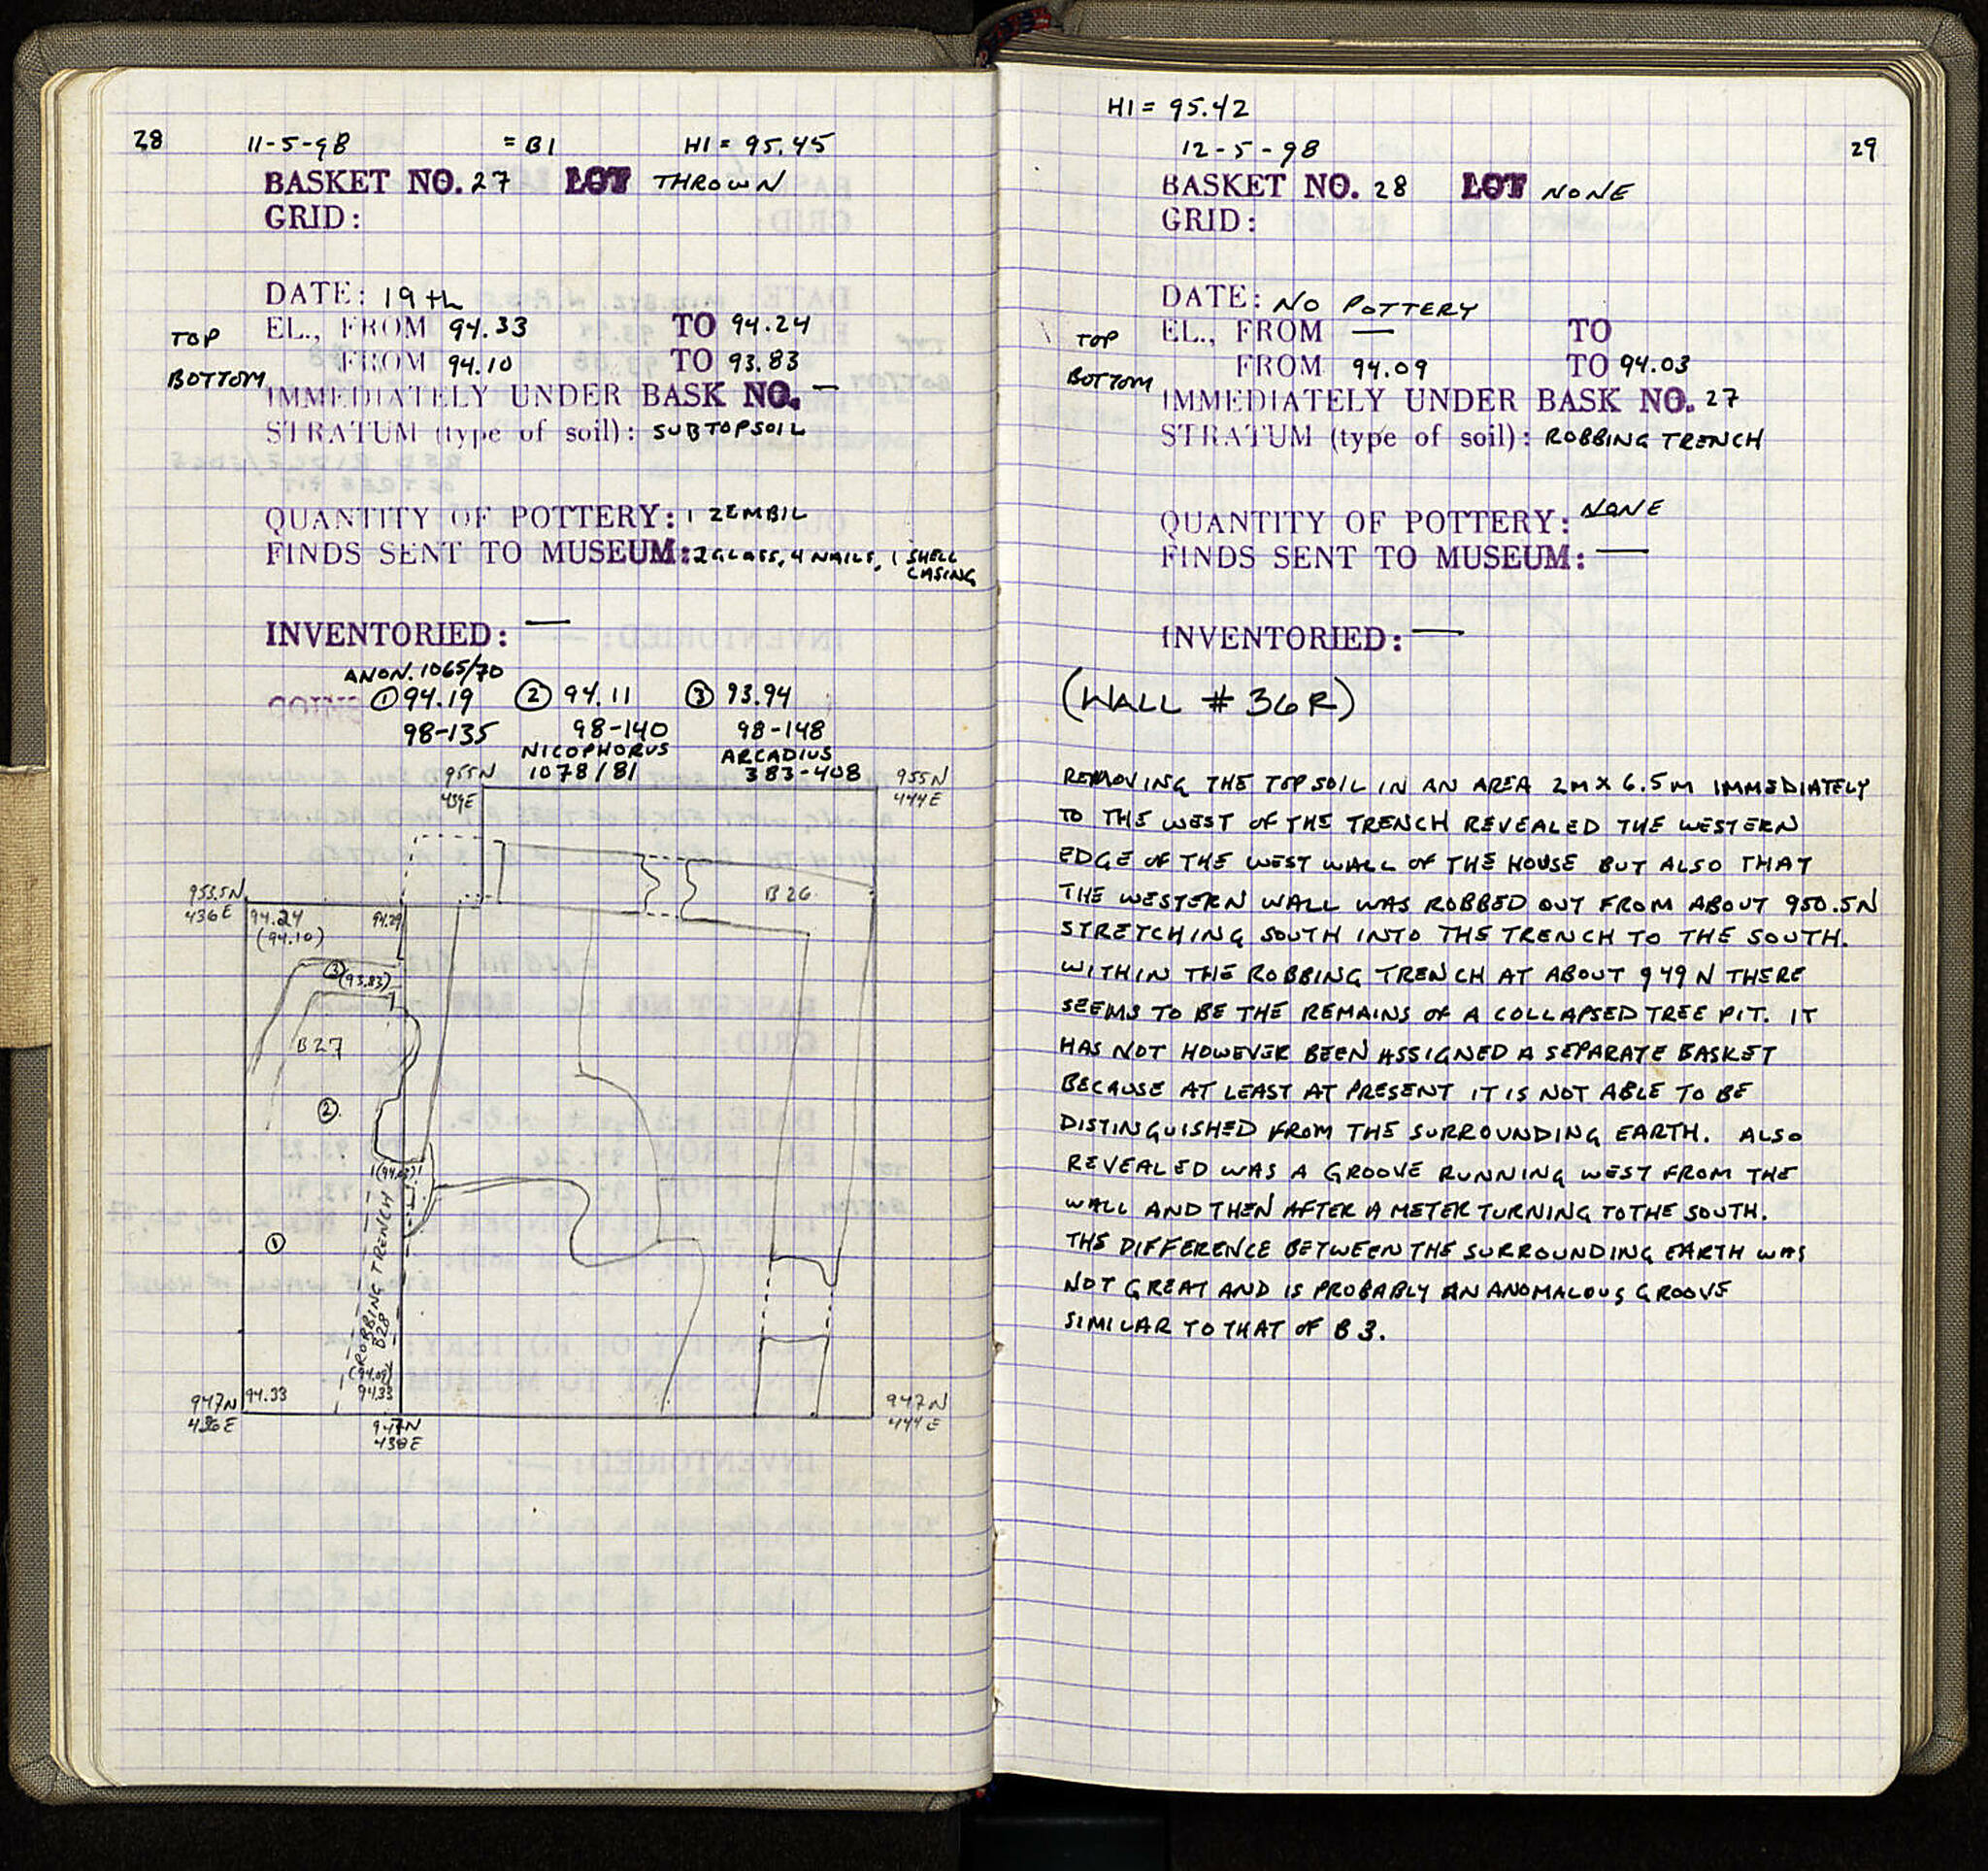 28 11-5-98 = B1 HI = 95.45
BASKET NO. 27 LOT THROWN
GRID:
DATE: 19th
TOP EL., FROM 94.33 TO 94.24
BOTTOM FROM 94.10 TO 93.83
IMMEDIATELY UNDER BASK NO. —
STRATUM (type of soil): SUBTOPSOIL
QUANTITY OF POTTERY: 1 ZEMBIL
FINDS SENT TO MUSEUM: 2 GLASS, 4 NAILS, 1 SHELL
CASING
INVENTORIED: —
ANON. 1065/70
① 94.19 ② 94.11 ③ 93.94
98-135 98-140 98-148
NICOPHORUS ARCADIUS
1078/81 383-408
955N 955N
439E 444E
B26
953.5N
436E 94.24 94.29
(94.10)
③ (93.83)
B27
②
(94.03)
①
ROBBING TRENCH
B28
(94.09)
94.33 94.33
947N 947N
436E 444E
947N
438E
HI = 95.42
12-5-98 29
BASKET NO. 28 LOT NONE
GRID:
DATE: NO POTTERY
TOP EL., FROM — TO
BOTTOM FROM 94.09 TO 94.03
IMMEDIATELY UNDER BASK NO. 27
STRATUM (type of soil): ROBBING TRENCH
QUANTITY OF POTTERY: NONE
FINDS SENT TO MUSEUM: —
INVENTORIED: —
(WALL # 36R)
REMOVING THE TOPSOIL IN AN AREA 2M X 6.5M IMMEDIATELY
TO THE WEST OF THE TRENCH REVEALED THE WESTERN
EDGE OF THE WEST WALL OF THE HOUSE BUT ALSO THAT
THE WESTERN WALL WAS ROBBED OUT FROM ABOUT 950.5N
STRETCHING SOUTH INTO THE TRENCH TO THE SOUTH.
WITHIN THE ROBBING TRENCH AT ABOUT 949N THERE
SEEMS TO BE THE REMAINS OF A COLLAPSED TREE PIT. IT
HAS NOT HOWEVER BEEN ASSIGNED A SEPARATE BASKET
BECAUSE AT LEAST AT PRESENT IT IS NOT ABLE TO BE
DISTINGUISHED FROM THE SURROUNDING EARTH. ALSO
REVEALED WAS A GROOVE RUNNING WEST FROM THE
WALL AND THEN AFTER A METER TURNING TO THE SOUTH.
THE DIFFERENCE BETWEEN THE SURROUNDING EARTH WAS
NOT GREAT AND IS PROBABLY AN ANOMALOUS GROOVE
SIMILAR TO THAT OF B3.